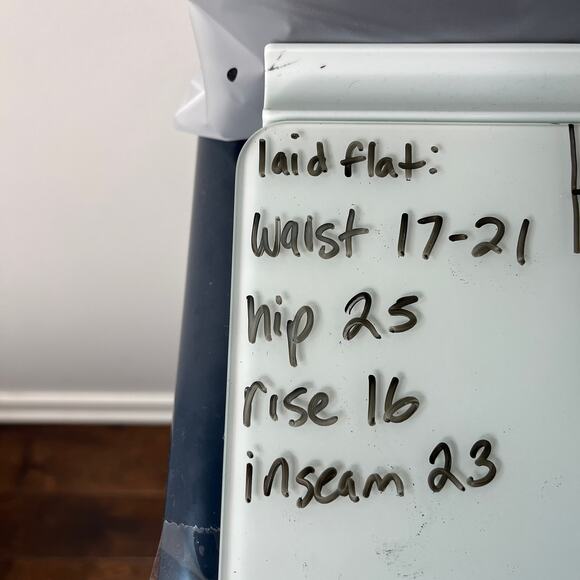 laid flat:
waist 17-21
hip 25
rise 16
inseam 23